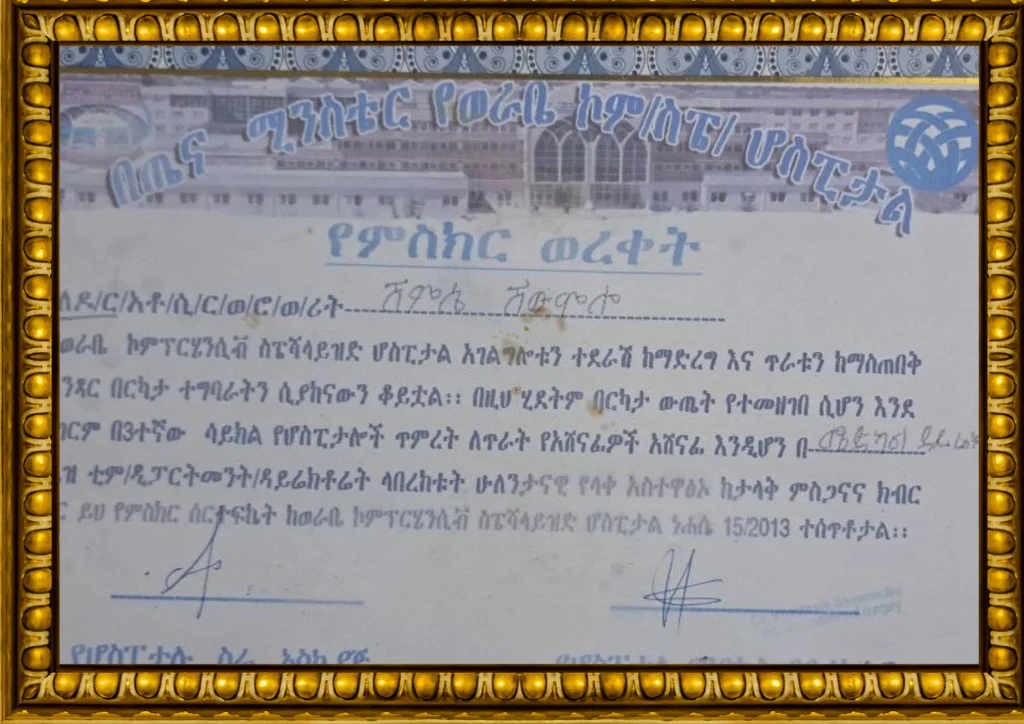 በጤና ሚንስቴር የወራቤ ኮም/ስፔ/ ሆስፒታል
የምስክር ወረቀት
ለዶ/ር/አቶ/ሲ/ር/ወ/ሮ/ወ/ሪት
ወራቤ ኮምፐርሄንሲቭ ስፔሻላይዝድ ሆስፒታል አገልግሎቱን ተደራሽ ከማድረግ እና ጥራቱን ከማስጠበቅ
ንጻር በርካታ ተግባራትን ሲያከናውን ቆይቷል፡፡ በዚህ ሂደትም በርካታ ውጤት የተመዘገበ ሲሆን እንደ
ገርም በ3ተኛው ሳይክል የሆስፒታሎች ጥምረት ለጥራት የአሸናፊዎች አሸናፊ እንዲሆን በ
ዝ ቲም/ዲፓርትመንት/ዳይሬክቶሬት ላበረከቱት ሁለንታናዊ የላቀ አስተዋፅኦ ከታላቅ ምስጋናና ክብር
ር ይህ የምስክር ሰርተፍኬት ከወራቤ ኮምፐርሄንሲቭ ስፔሻላይዝድ ሆስፒታል ነሐሴ 15/2013 ተሰጥቶታል፡፡
የሆስፒታሉ ስራ አስኪያጅ